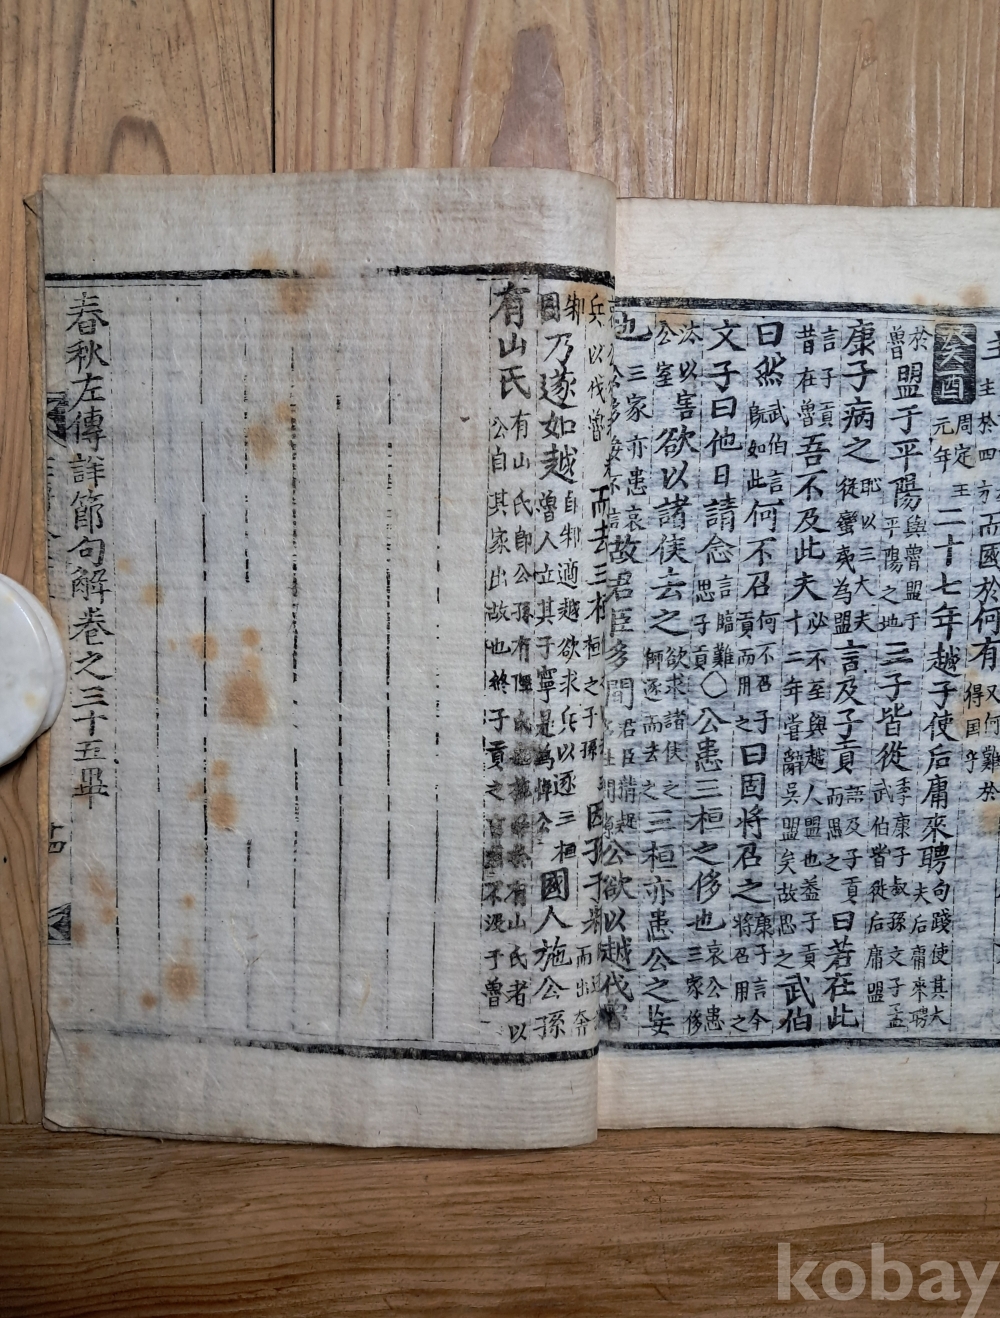 主 主於四方而國於何有 又何難於得国乎
癸酉 周定王元年 二十七年越子使后庸來聘 句踐使其大夫后庸來聘
於魯盟于平陽 與魯盟于平陽之地 三子皆從 季康子叔孫文子孟武伯皆從后庸盟
康子病之 恥以三大夫從蠻夷為盟 言及子貢 語及子貢而愚之 曰若在此
言子貢昔在魯 吾不及此夫 十二年嘗辭吳盟矣故思之 武伯
曰然 武伯言既如此 何不召 何不召子貢而用之 曰固將召之 康子言今將召用之
文子曰他日請念 言臨難思子貢 〇公患三桓之侈也 哀公患三家侈
汰以害公室 欲以諸侯去之 欲求諸侯之師逐而去之 三桓亦患公之妄
也 三家亦患哀 故君臣多間 公欲以越伐魯
兵以伐魯 而去三桓 桓之子孫 因孫于邾
邾 因乃遂如越 自邾適越欲求兵以逐三桓 國人施公孫
有山氏 有山氏即公孫有 公自其家出故也終子貢之 不沒于魯
春秋左傳詳節句解卷之三十五畢
十四
kobay